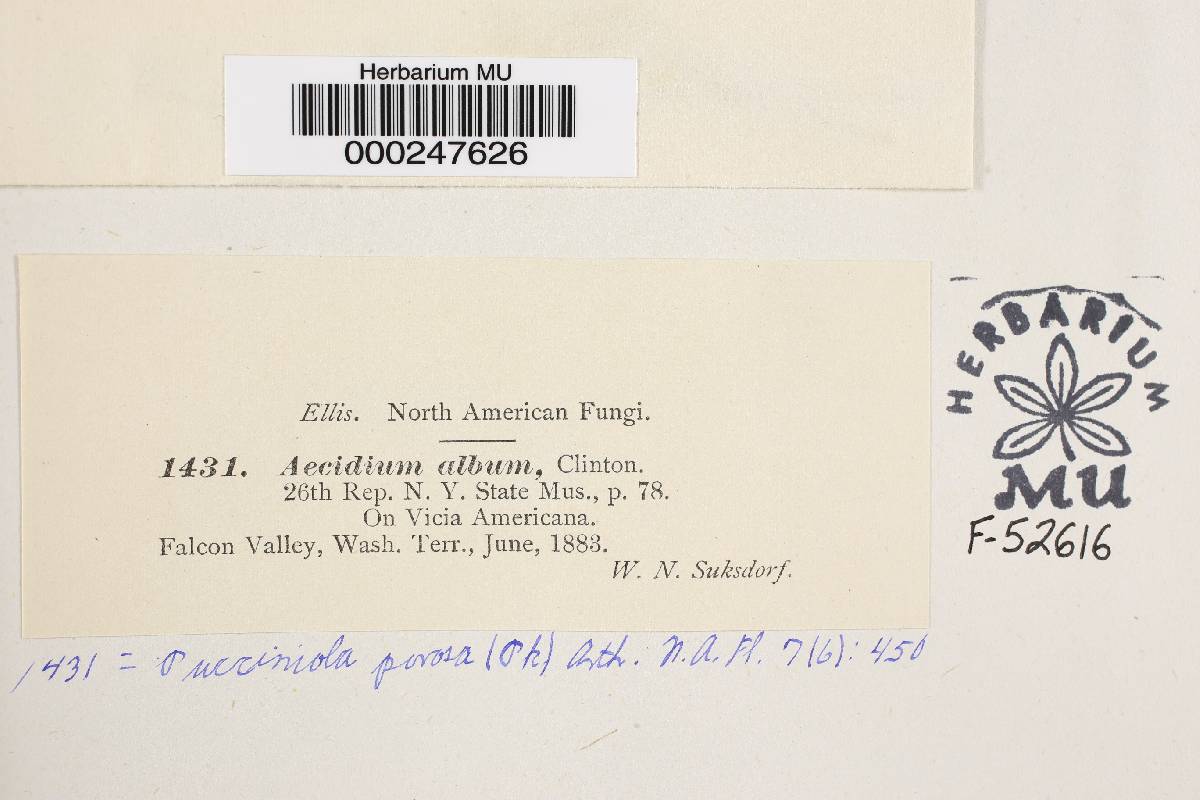 Herbarium MU
000247626
Ellis. North American Fungi.
1431. Aecidium album, Clinton.
26th Rep. N. Y. State Mus., p. 78.
On Vicia Americana.
Falcon Valley, Wash. Terr., June, 1883.
W. N. Suksdorf.
HERBARIUM
MU
F-52616
1431 = Pucciniola porosa (Pk) Arth. N.A. Fl. 7(6): 450